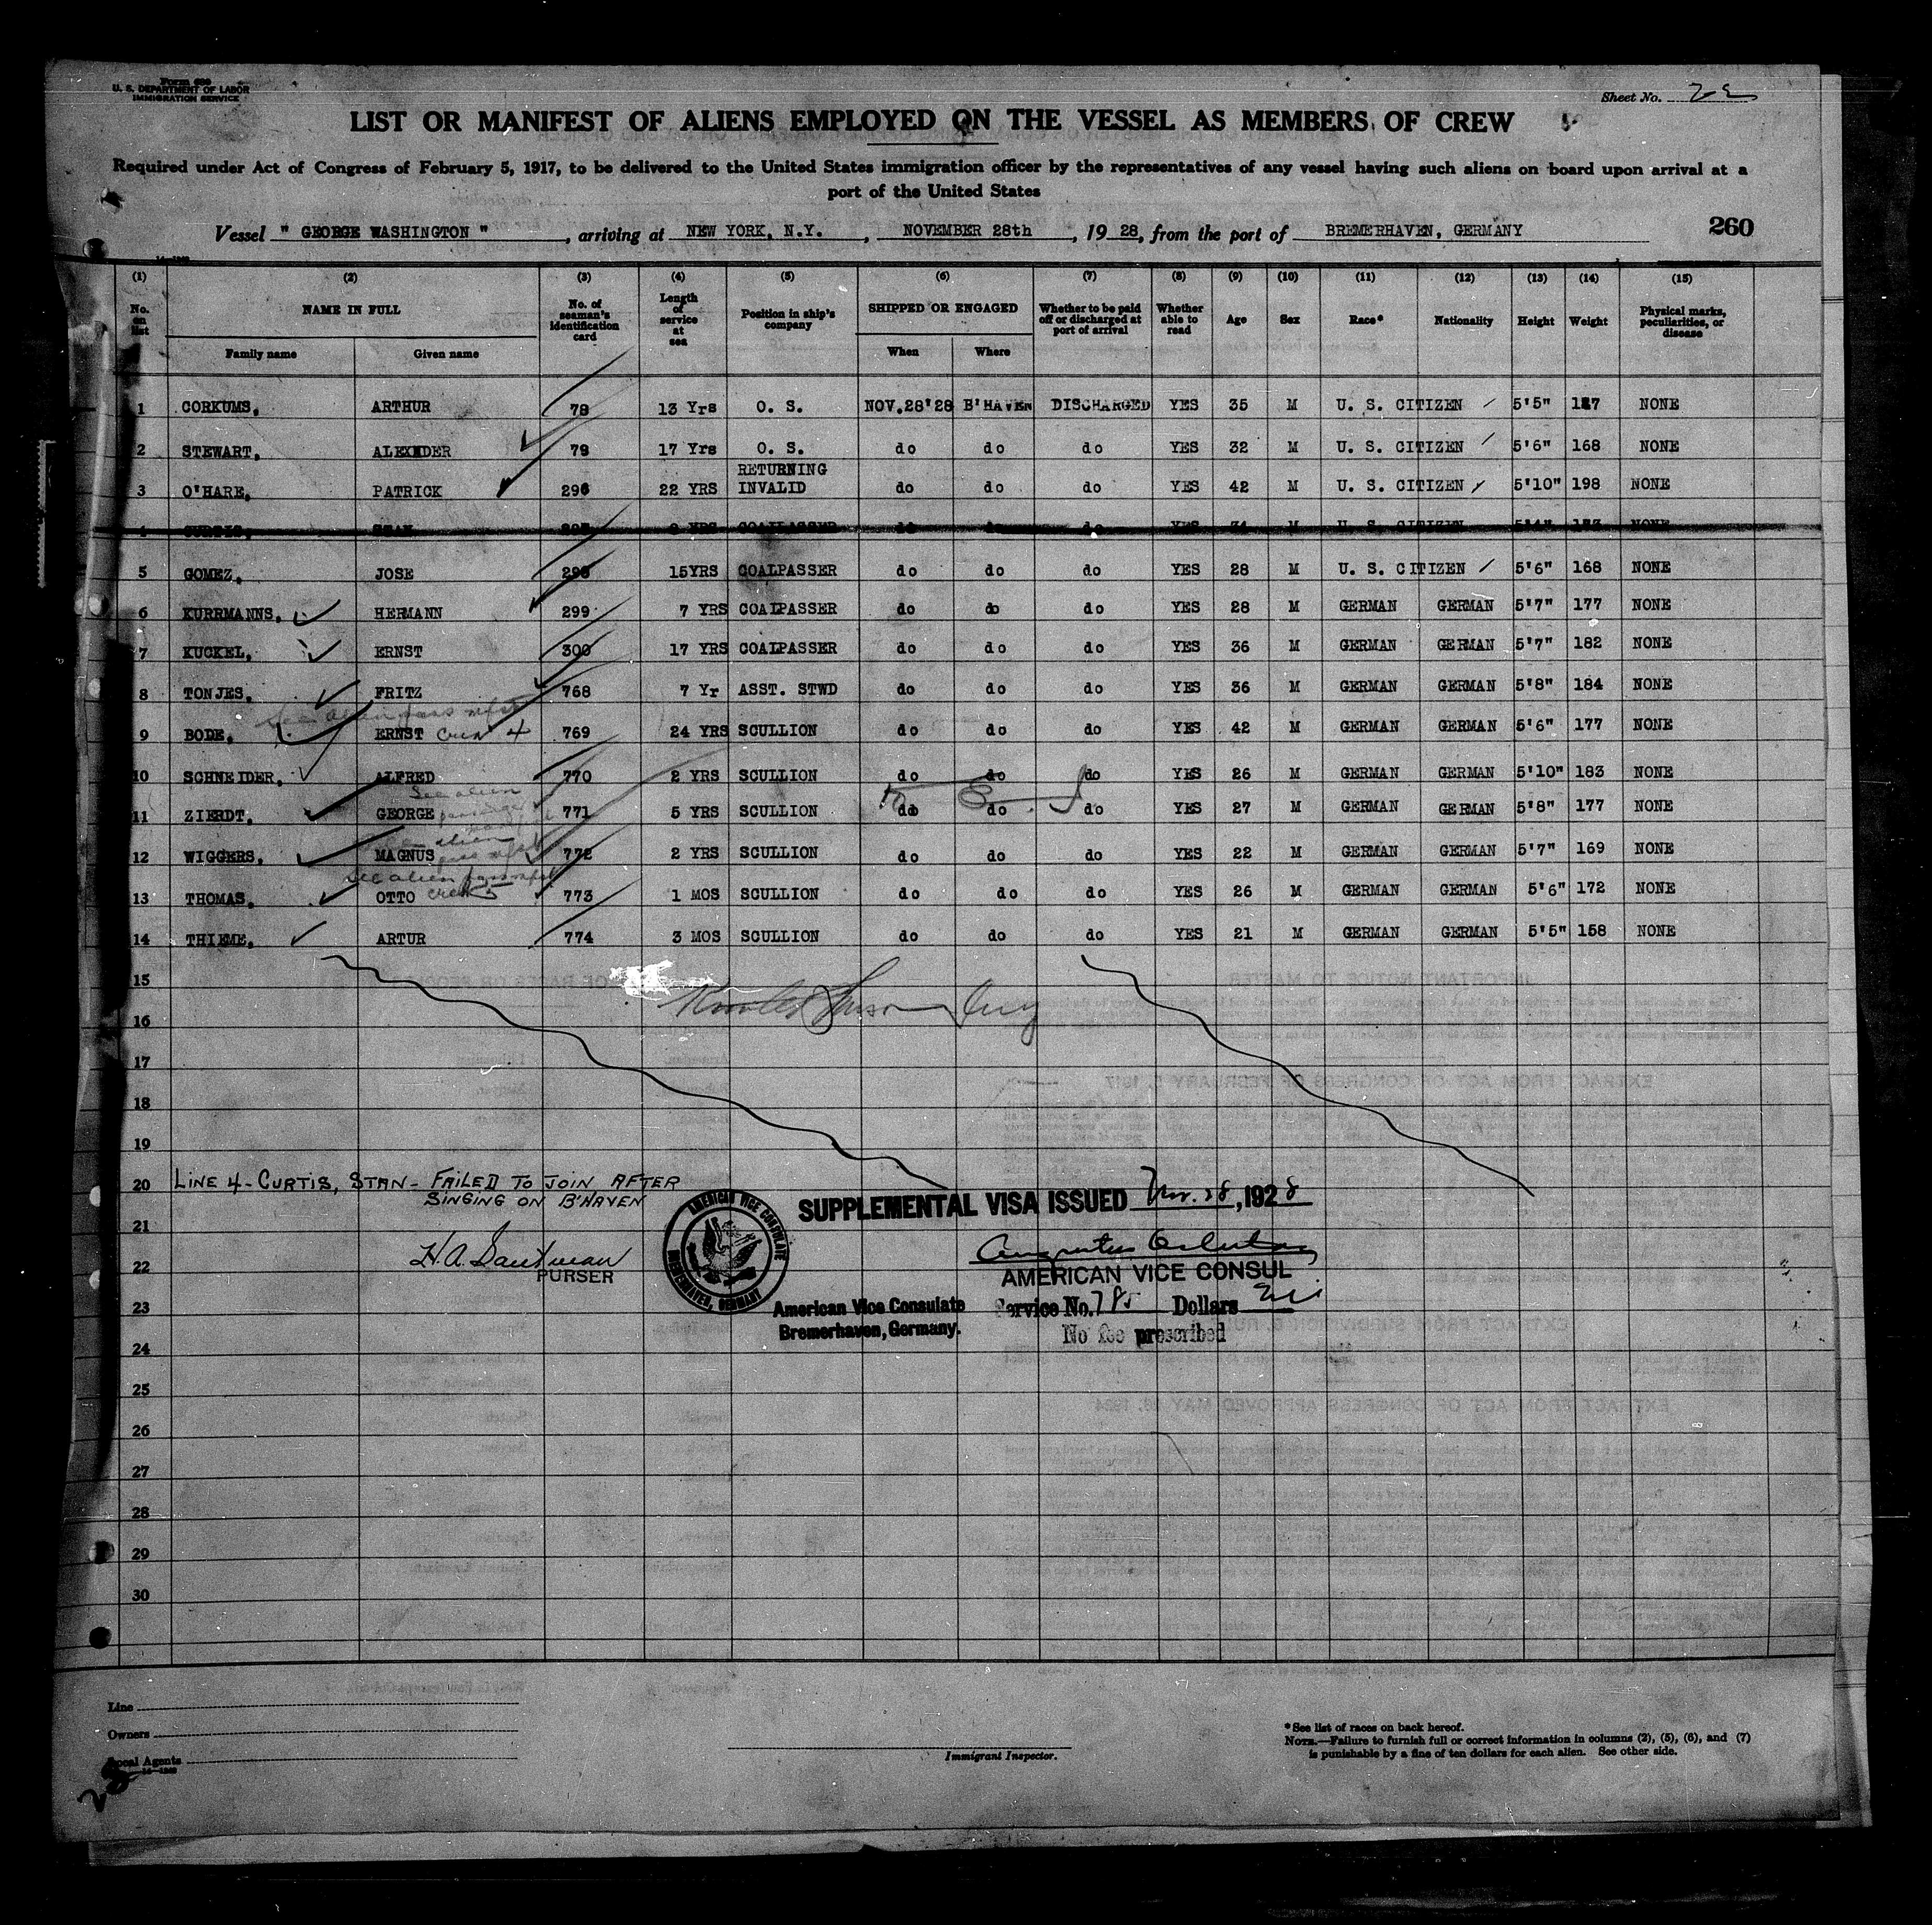 Form 680
U. S. DEPARTMENT OF LABOR
IMMIGRATION SERVICE
Sheet No.
LIST OR MANIFEST OF ALIENS EMPLOYED ON THE VESSEL AS MEMBERS OF CREW
Required under Act of Congress of February 5, 1917, to be delivered to the United States immigration officer by the representatives of any vessel having such aliens on board upon arrival at a
port of the United States
Vessel " GEORGE WASHINGTON ", arriving at NEW YORK, N.Y., NOVEMBER 28th, 19 28, from the port of BREMERHAVEN, GERMANY
260
(1) (2) (3) (4) (5) (6) (7) (8) (9) (10) (11) (12) (13) (14) (15)
No. on list NAME IN FULL No. of seaman's identification card Length of service at sea Position in ship's company SHIPPED OR ENGAGED Whether to be paid off or discharged at port of arrival Whether able to read Age Sex Race* Nationality Height Weight Physical marks, peculiarities, or disease
Family name Given name When Where
1 CORKUMS, ARTHUR 78 13 Yrs O. S. NOV.28'28 B'HAVEN DISCHARGED YES 35 M U. S. CITIZEN 5'5" NONE
2 STEWART, ALEXNDER 79 17 Yrs O. S. do do do YES 32 M U. S. CITIZEN 5'6" 168 NONE
3 O'HARE, PATRICK 296 22 YRS RETURNING INVALID do do do YES 42 M U. S. CITIZEN 5'10" 198 NONE
4 CURTIS, STAN YRS COALPASSER do do do YES 34 M U. S. CITIZEN 5'4" NONE
5 GOMEZ, JOSE 15YRS COALPASSER do do do YES 28 M U. S. CITIZEN 5'6" 168 NONE
6 KURRMANNS, HERMANN 299 7 YRS COALPASSER do do do YES 28 M GERMAN GERMAN 5'7" 177 NONE
7 KUCKEL, ERNST 300 17 YRS COALPASSER do do do YES 36 M GERMAN GERMAN 5'7" 182 NONE
8 TONJES, FRITZ 768 7 Yr ASST. STWD do do do YES 36 M GERMAN GERMAN 5'8" 184 NONE
see alien pass mfst
9 BODE, ERNST 4 769 24 YRS SCULLION do do do YES 42 M GERMAN GERMAN 5'6" 177 NONE
10 SCHNEIDER, ALFRED 770 2 YRS SCULLION do do do YES 26 M GERMAN GERMAN 5'10" 183 NONE
See alien
11 ZIERDT, GEORGE 771 5 YRS SCULLION do do do YES 27 M GERMAN GERMAN 5'8" 177 NONE
alien
12 WIGGERS, MAGNUS 772 2 YRS SCULLION do do do YES 22 M GERMAN GERMAN 5'7" 169 NONE
see alien pass mfst
13 THOMAS, OTTO 773 1 MOS SCULLION do do do YES 26 M GERMAN GERMAN 5'6" 172 NONE
14 THIEME, ARTUR 774 3 MOS SCULLION do do do YES 21 M GERMAN GERMAN 5'5" 158 NONE
15
16
17
18
19
20 LINE 4 - CURTIS, STAN - FAILED TO JOIN AFTER
SINGING ON B'HAVEN
SUPPLEMENTAL VISA ISSUED Nov. 28, 1928
21
22 H.A. Sautman
PURSER
AMERICAN VICE CONSULATE
BREMERHAVEN, GERMANY
AMERICAN VICE CONSUL
23 American Vice Consulate Service No. 785 Dollars
Bremerhaven, Germany. No fee prescribed
24
25
26
27
28
29
30
Line
Owners
Local Agents
Immigrant Inspector.
*See list of races on back hereof.
NOTE.—Failure to furnish full or correct information in columns (2), (5), (6), and (7)
is punishable by a fine of ten dollars for each alien. See other side.